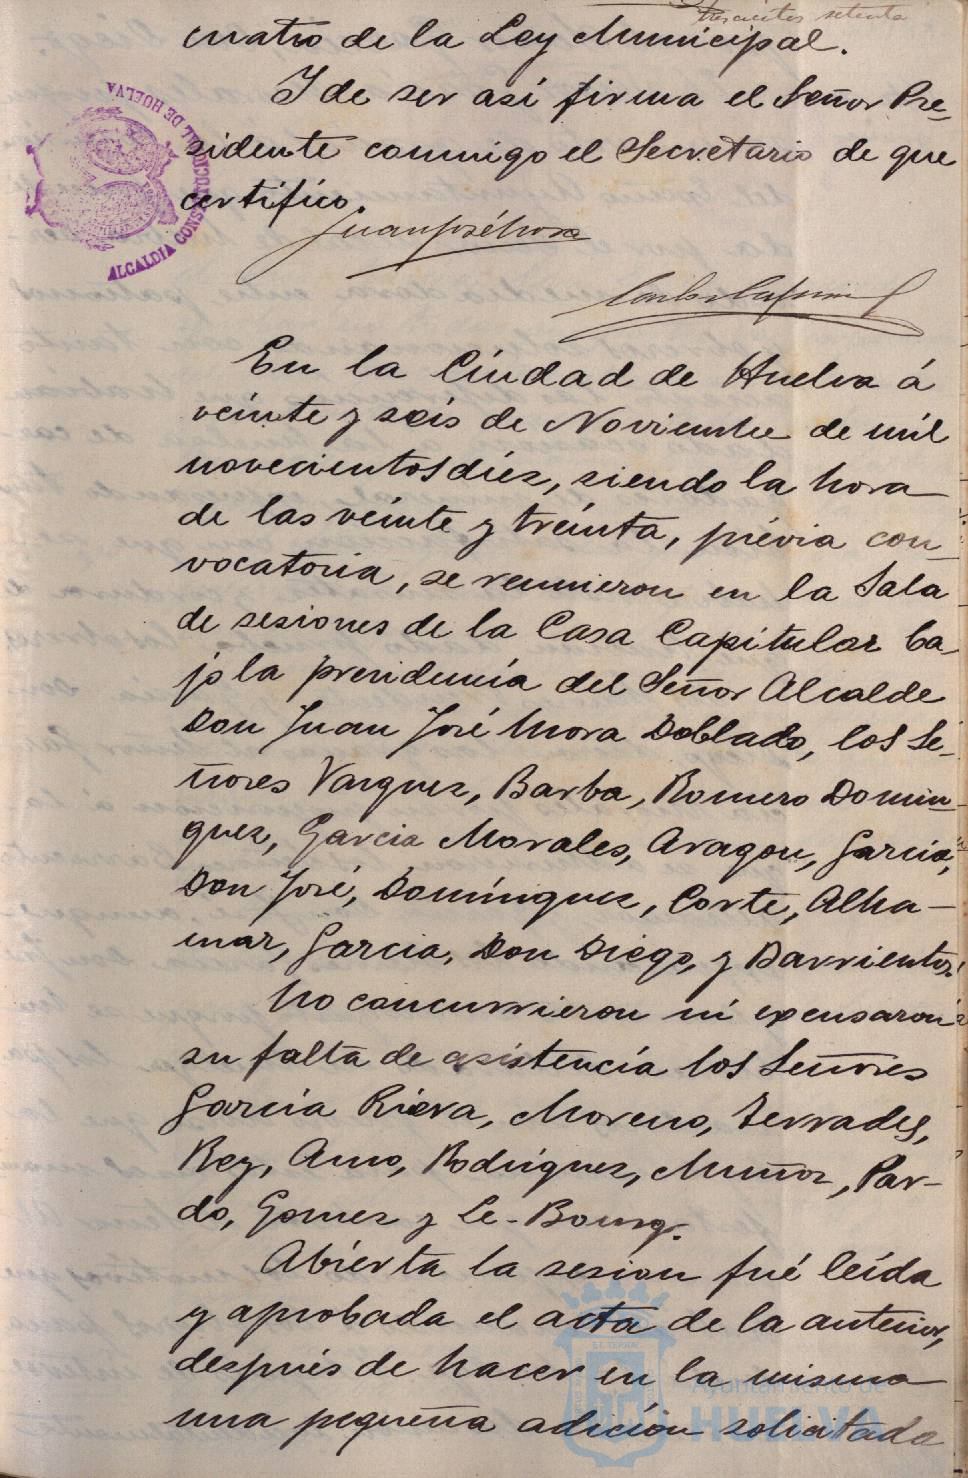 trescientos setenta
cuatro de la Ley Municipal.
Y de ser así firma el Señor Pre-
sidente conmigo el Secretario de que
certifico.
Juan José Mora
ALCALDIA CONSTITUCIONAL DE HUELVA
En la Ciudad de Huelva á
veinte y seis de Noviembre de mil
novecientos diez, siendo la hora
de las veinte y treinta, prévia con-
vocatoria, se reunieron en la Sala
de sesiones de la Casa Capitular ba-
jo la presidencia del Señor Alcalde
Don Juan José Mora Doblado, los Se-
ñores Vazquez, Barba, Romero Domin-
guez, Garcia Morales, Aragon, Garcia,
Don José, Domínguez, Corte, Alha-
mar, Garcia, Don Diego, y Barrientos.
No concurrieron ni excusaron
su falta de asistencia los Señores
Garcia Riera, Moreno, Terrades,
Rey, Amo, Rodriguez, Muñoz, Par-
do, Gomez y Le-Bourg.
Abierta la sesion fué leída
y aprobada el acta de la anterior,
después de hacer en la misma
una pequeña adición solicitada
Ayuntamiento de
HUELVA